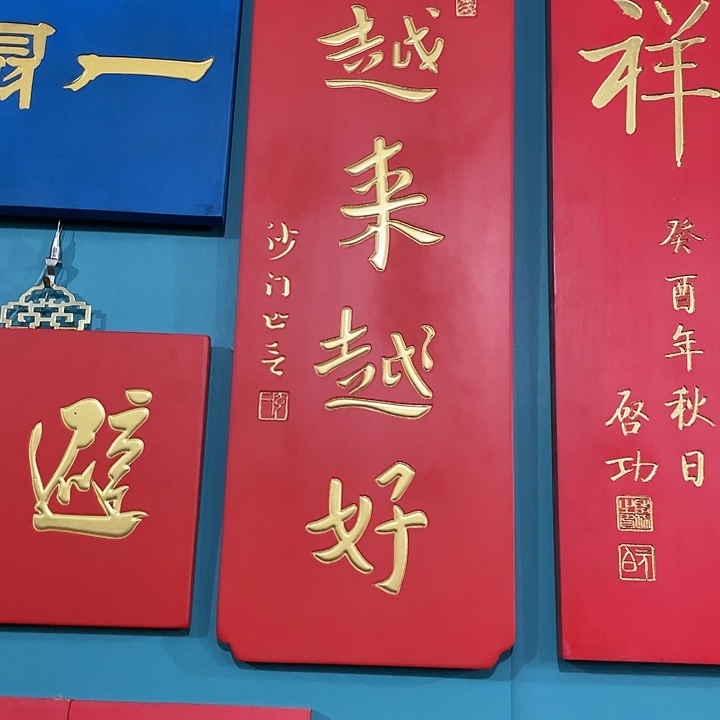 一
避
越来越好
沙门
祥
癸酉年秋日
启功